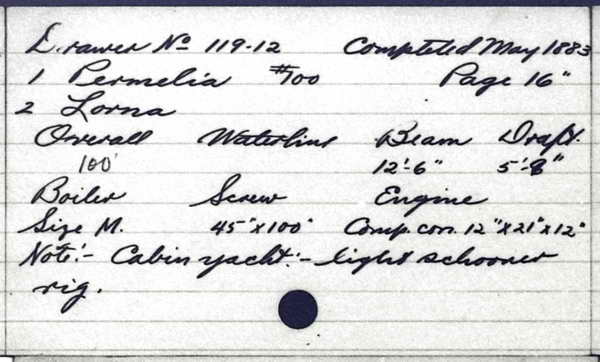 Drawer No 119-12 Completed May 1883
1 Permelia #100 Page 16"
2 Lorna
Overall Waterline Beam Draft.
100' 12'-6" 5'-8"
Boiler Screw Engine
Size M. 45"x100" Comp. con. 12"x21"x12"
Note:- Cabin yacht:- light schooner
rig.